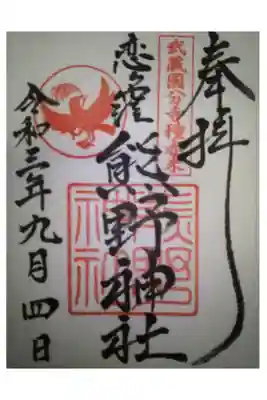 奉拝
武蔵國分寺
恋ヶ窪
熊野神社
令和三年九月四日